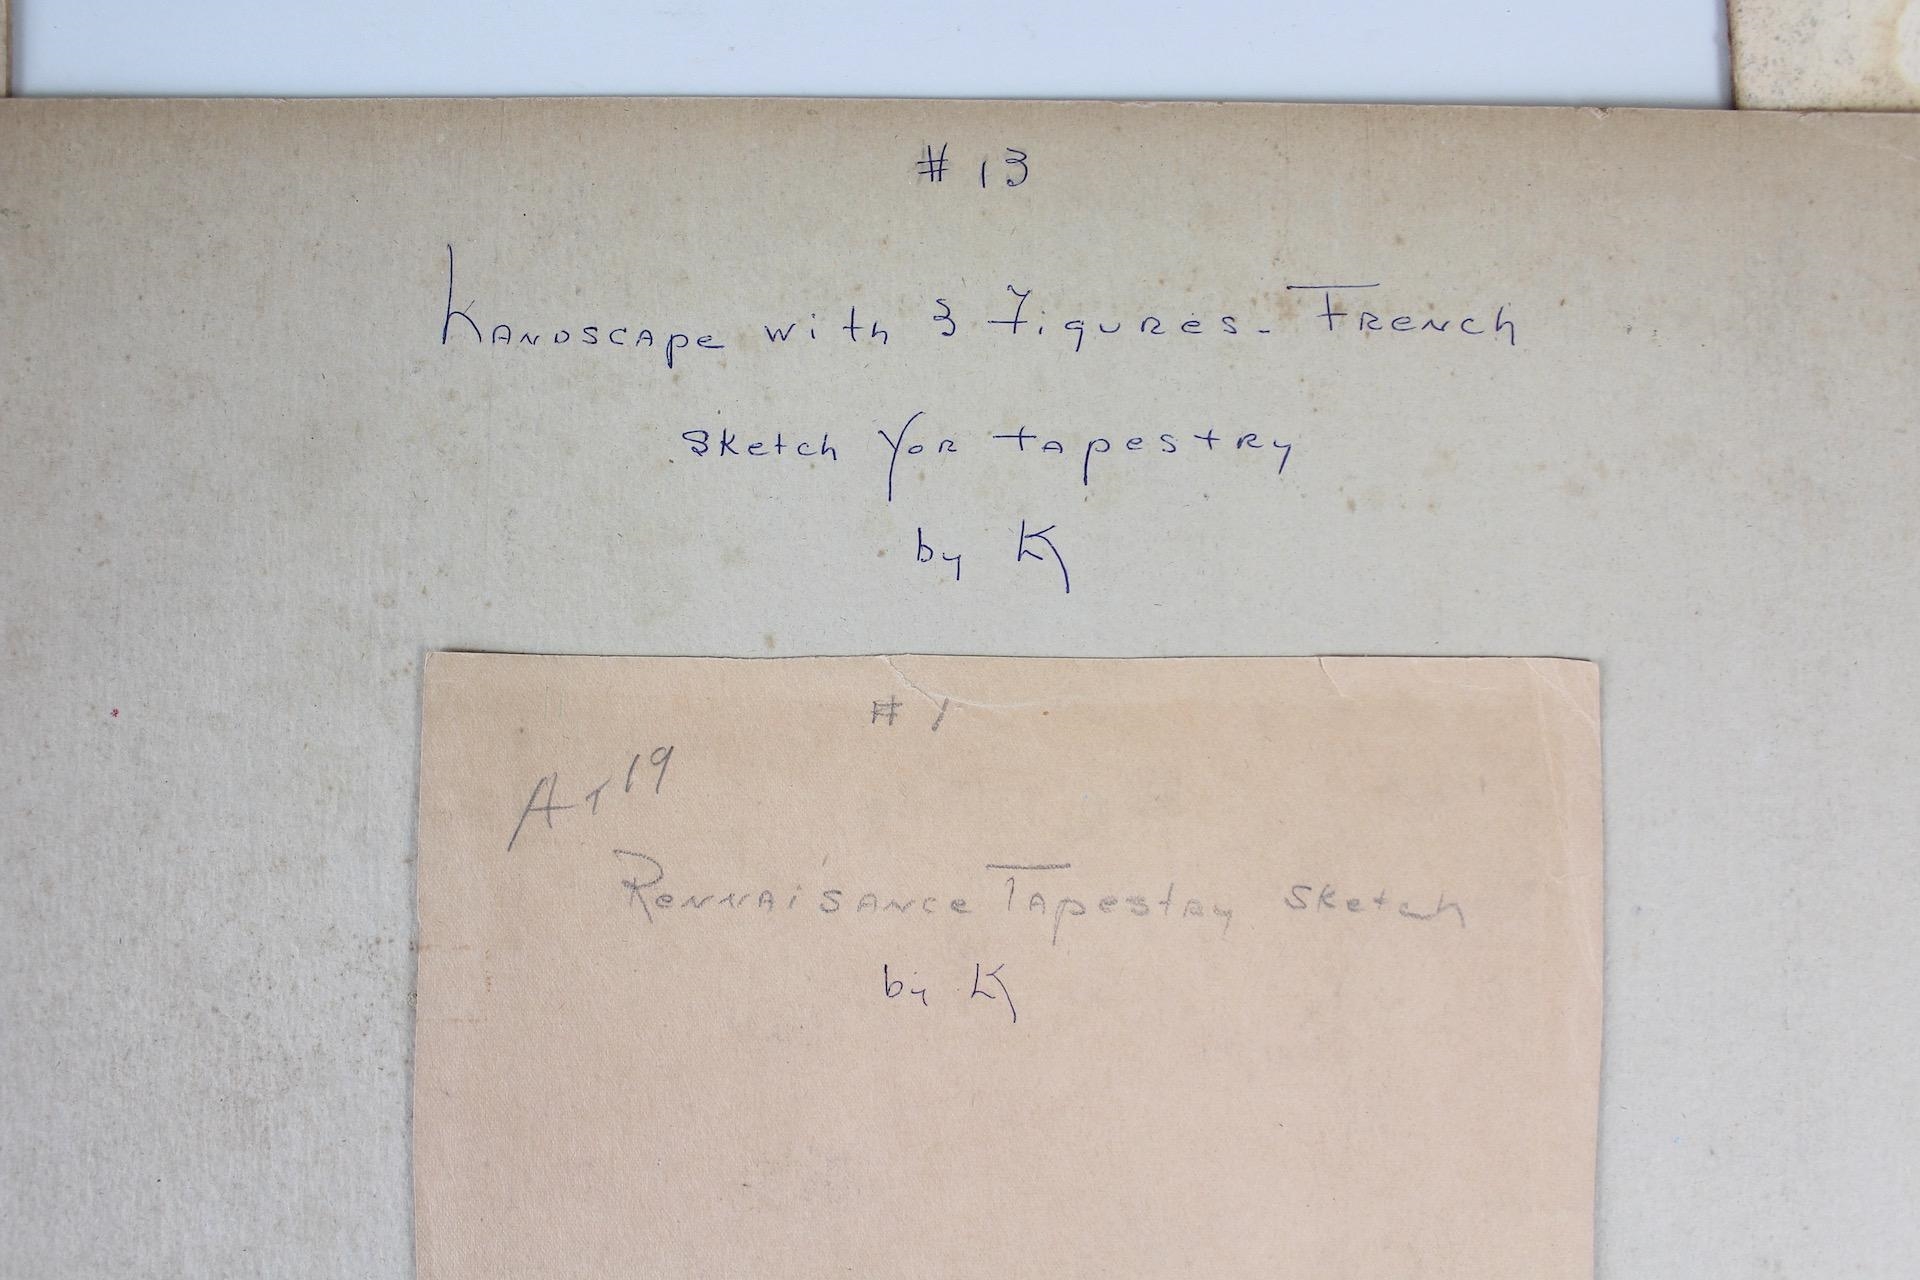 # 13
Landscape with 3 Figures - French
Sketch for tapestry
by K
# 1
AT 19
Rennaisance Tapestry Sketch
by K